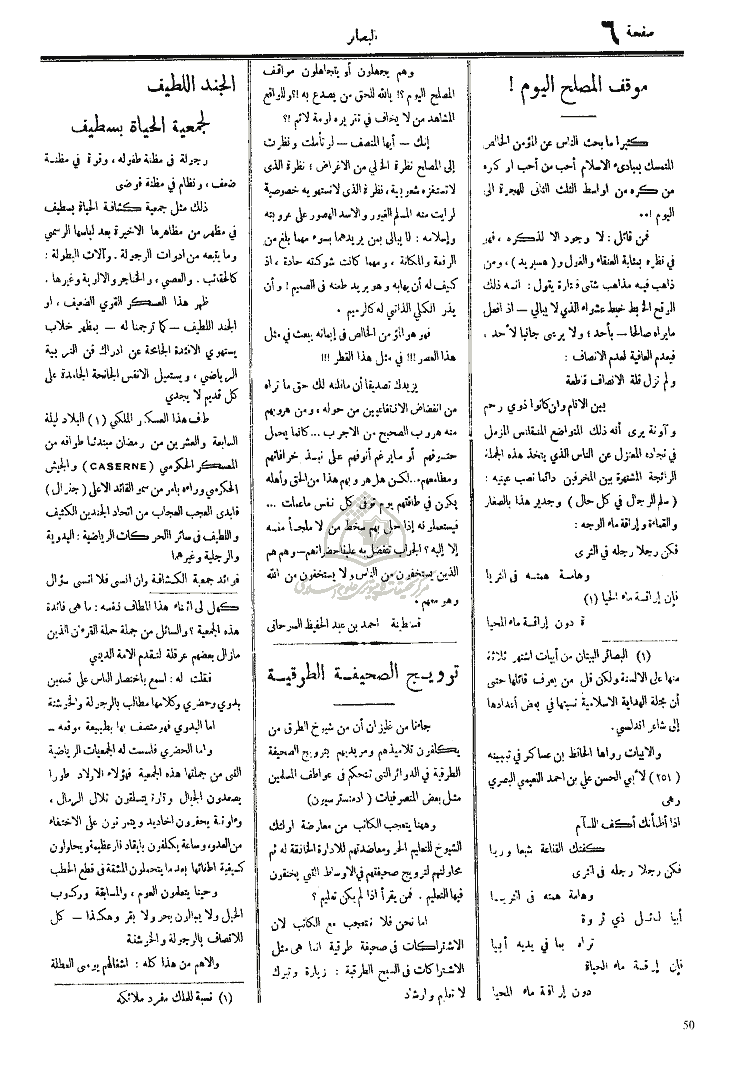 صفحة ٦
البصائر
موقف المصلح اليوم !
كثيرا ما بحث الناس عن المؤمن الخالص
المتمسك بمبادئ الاسلام أحب من أحب او كره
من كره من اواسط الثلث الثاني للهجرة الى
اليوم !••
فمن قائل : لا وجود الا لذكره ، فهو
فى نظره بمثابة العنقاء والغول و ( هسبريد ) ، ومن
ذاهب فيه مذاهب شتى فتارة يقول : انه ذلك
الرقع الخابط خبط عشواء الذي لا يبالي — اذ انعل
مايراه صالحا — بأحد ؛ ولا يرعى جانبا لأحد ،
فيعدم العافية لعدم الانصاف :
ولم تزل قلة الانصاف قاطعة
بين الانام وان كانوا ذوي رحم
و آونة يرى أنه ذلك المتواضع المتقاعس المزمل
في نجاده المنعزل عن الناس الذي يتخذ هذه الجملة
الرائجة المشتهرة بين المخرفين دائما نصب عينيه :
( سلم للرجال في كل حال ) وجدير هذا بالصغار
والقماءة و إراقة ماء الوجه :
فكن رجلا رجله في الثرى
وهامسة همتسه فى الثريا
فإن إراقة ماء الحيا (١)
ة دون إراقسة ماء المحيا
(١) البصائر البيتان من أبيات اشتهر ثلاثة
منها على الالسنة ولكن قل من يعرف قائلها حتى
أن مجلة الهداية الاسلامية نسبتها في بعض أعدادها
إلى شاعر اندلسي .
والابيات رواها الحافظ بن عساكر في تبيينه
( ٢٥١ ) لأبي الحسن علي بن احمد النعيمي البصري
وهى
اذا أظمأتك أكف اللئام
كفتك القناعة شبعا وريا
فكن رجلا رجله فى الثرى
وهامة همته فى الثريا
أبيا لنائل ذي ثروة
تراه بما في يديه أبيا
فإن إراقة ماء الحياة
دون إراقة ماء المحيا
وهم يجهلون أو يتجاهلون مواقف
المصلح اليوم ؟! بالله للحق من يصدع به !؟ وللواقع
المشاهد من لا يخاف في تقريره لومة لائم !؟
إنك — أيها المنصف — لو تأملت ونظرت
إلى المصلح نظرة الخلي من الاغراض ؛ نظرة الذى
لا تستفزه شعوبية ، نظرة الذى لا تستهويه خصوصية
لرايت منه المسلم الغيور والاسد الهصور على عروبته
وإسلامه : لا يبالي بمن يريدهما بسوء مهما بلغ من
الرفعة والمكانة ، ومهما كانت شوكته حادة ، اذ
كيف له أن يهابه و هو يريد طعنه فى الصميم ! وأن
يذر الكلي الذاتي له كالرميم .
فهو هو المؤمن الخالص في إيمانه يبعث في مثل
هذا العصر !!! في مثل هذا القطر !!!
يزيدك تصديقا أن ماقلته لك حق ما تراه
من انفضاض الانتفاعيين من حوله ، ومن هروبهم
منه هروب الصحيح من الاجرب ... كانما يحمل
حتوفهم أو مايرغم أنوفهم على نبذ خرافاتهم
ومطامعهم ... لكن هل هروبهم هذا من الحق وأهله
يكون في طاقتهم يوم توفى كل نفس ماعملت ...
فيستمطر له إذا حل بهم سخط من لا ملجأ منه
إلا إليه ؟ الجواب تتفضل به علينا حضراتهم — وهم هم
الذين يستخفون من الناس ولا يستخفون من الله
وهو معهم .
قسنطينة احمد بن عبد الحفيظ السرحانى
ترويج الصحيفة الطرقية
جاءنا من غليزان أن من شيوخ الطرق من
يكلفون تلاميذهم ومريديهم بترويج الصحيفة
الطرقية في الدوائر التى تتحكم فى عواطف المسلمين
مثل بعض المتصرفيات ( ادمنستر سيون )
وهنا يتعجب الكاتب من معارضة اولئك
الشيوخ للتعليم الحر ومعاضدتهم للادارة الخانقة له ثم
محاولتهم لترويج صحيفتهم فى الاوساط التي يخنقون
فيها التعليم . فمن يقرأ اذا لم يكن تعليم ؟
اما نحن فلا نتعجب مع الكاتب لان
الاشتراكات في صحيفة طرقية انما هى مثل
الاشتراكات في السبح الطرقية : زيارة وتبرك
لا تعليم وارشاد
الجند اللطيف
لجمعية الحياة بسطيف
رجولة فى مظنة طفولة ، وقوة فى مظنة
ضعف ، ونظام فى مظنة فوضى
ذلك مثل جمعية كشافة الحياة بسطيف
في مظهر من مظاهرها الاخيرة بعد لباسها الرسمي
وما يتبعه من ادوات الرجولة . وآلات البطولة :
كالحقائب . والعصي ، والخناجر والاوبة وغيرها .
ظهر هذا العسكر القوي الضعيف ، او
الجند اللطيف — كما ترجمنا له — بمظهر خلاب
يستهوي الافئدة الجامحة عن ادراك فن التربية
الرياضي ، ويستميل الانفس الجانحة الجامدة على
كل قديم لا يجدي
طف هذا العسكر الملكي (١) البلاد ليلة
السابعة والعشرين من رمضان مبتدئا طوافه من
المعسكر الحكومي ( CASERNE ) والجيش
الحكومي وراءه بامر من سمو القائد الاعلى ( جنرال )
فابدى العجب العجاب من اتحاد الجندين الكثيف
و اللطيف فى سائر الحركات الرياضية : اليدوية
والرجلية وغيرهما
فوائد جمعية الكشافة وان انسى فلا انسى سؤال
كهول لى اثناء هذا المطاف نفسه : ما هى فائدة
هذه الجمعية ؟ والسائل من جملة حملة القرءان الذين
مازال بعضهم عرقلة لتقدم الامة الديني
فقلت له : اسمع باختصار الناس على قسمين
بدوي وحضري وكلامها مطالب بالرجولة والخرشنة
اما البدوي فهو متصف بها بطبيعة موقعه —
واما الحضري فأسست له الجمعيات الرياضية
التى من جملتها هذه الجمعية فهؤلاء الاولاد طورا
يصعدون الجبال وتارة يتسلقون تلال الرمال ،
وءاونة يحفرون اخاديد ويتمرنون على الاختفاء
من العدو ، وساعة يكلفون بإيقاد نار عظيمة ويحاولون
كيفية اطفائها بعد ما يتحملون المشقة في قطع الحطب
وحينا يتعلمون العوم ، والمسابقة وركوب
الخيل ولا يبالون بحر ولا بقر وهكذا — كل
للاتصاف بالرجولة والخرشنة
والاهم من هذا كله : اشغالهم يومى العطلة
(١) نسبة للملك مفرد ملائكة
50